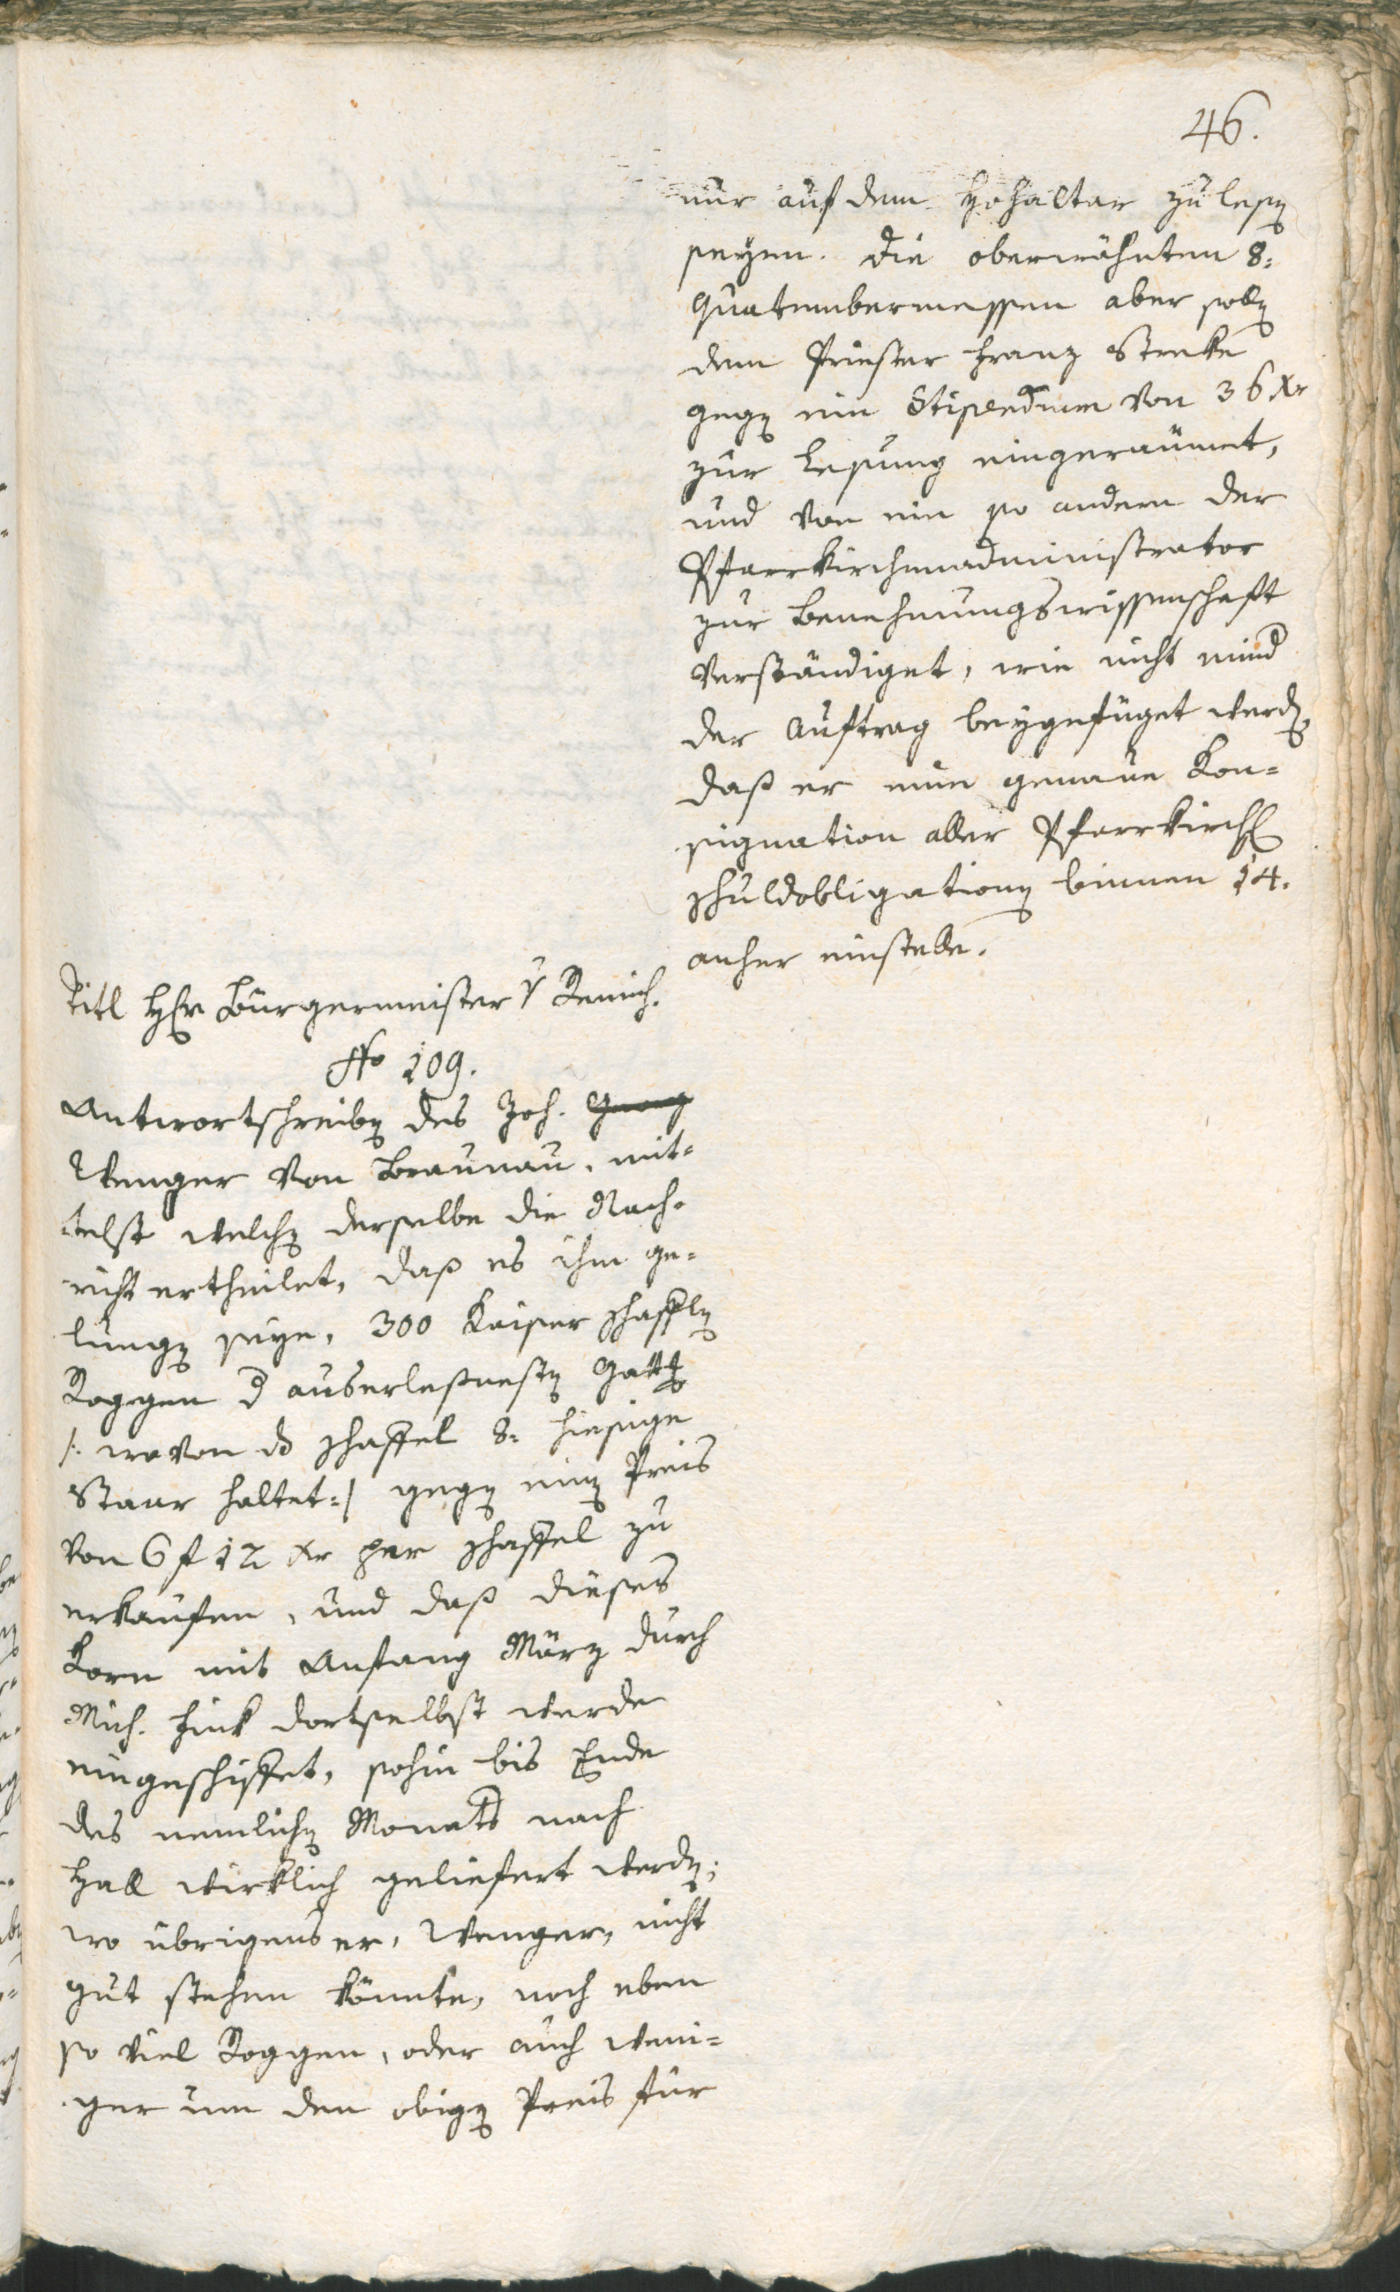 46.
nur auf dem Hohaltar zu lesen
seyen. Die oberwähnten 8:
Quatembermessen aber sollen
dem Priester Franz Streke
gegen ein Stipendium von 36 Xr
zur Lesung eingeraümet,
und von ein so andern der
Pfarrkirchenadministrator
zur Benehmungswissenschaft
verständiget, wie nicht mind
der Auftrag beygefüget werden,
daß er eine genaue Kon=
signation aller Pfarrkirchen
schuldobligationen binnen 14.
anher einstelle.
Titl Hr Bürgermeister v Remich.
No 109.
Antwortschreiben des Joh. Georg
Wenger von Braunau, mit=
telst welchen derselbe die Nach=
richt ertheilet, daß es ihm ge=
lungen seye, 300 Kaiser Schaffeln
Roggen d auserlesnesten Gatt
/: wovon das Schaffel 8: hiesige
Staar haltet :/ gegen einen Preis
von 6 f 12 Xr per Schaffel zu
erkaufen, und daß dieses
Korn mit Anfang März durch
Mich. Fink dortselbst werde
eingeschiffet, sohin bis Ende
des nemlichen Monats nach
Hall wirklich geliefert werden;
wo übrigens er, Wenger, nicht
gut stehen könnte, noch eben
so viel Roggen, oder auch weni=
ger um den obigen Preis für